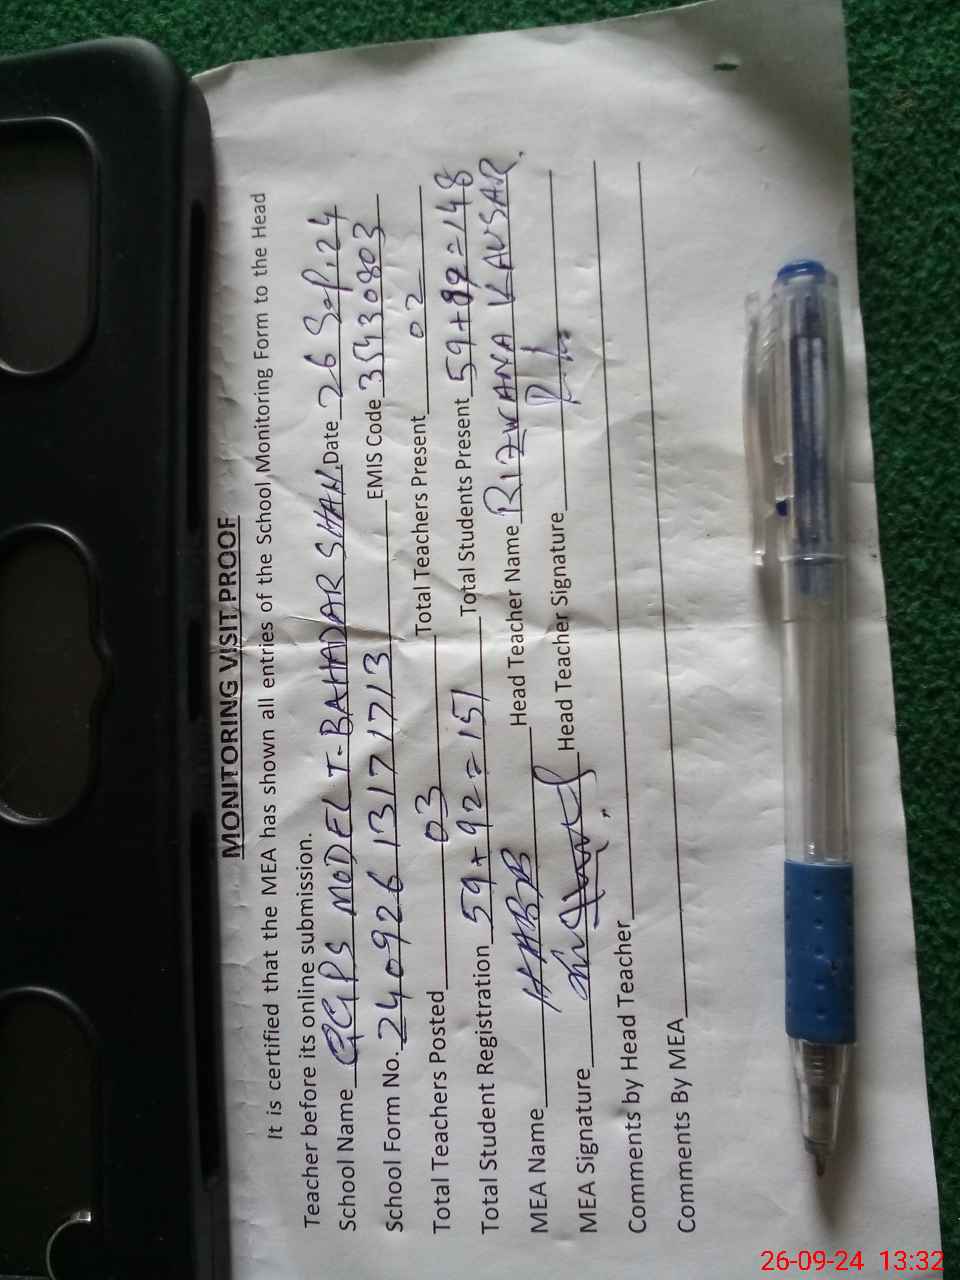 MONITORING VISIT PROOF
It is certified that the MEA has shown all entries of the School Monitoring Form to the Head
Teacher before its online submission.
School Name GGPS MODEL T-BAHADAR SHAH Date 26 Sep, 24
School Form No. 240926131717713 EMIS Code 35430803
Total Teachers Posted 03 Total Teachers Present 02
Total Student Registration 59+92=151 Total Students Present 59+89=148
MEA Name Head Teacher Name RIZWANA KAUSAR
MEA Signature Head Teacher Signature
Comments by Head Teacher
Comments By MEA
26-09-24 13:32